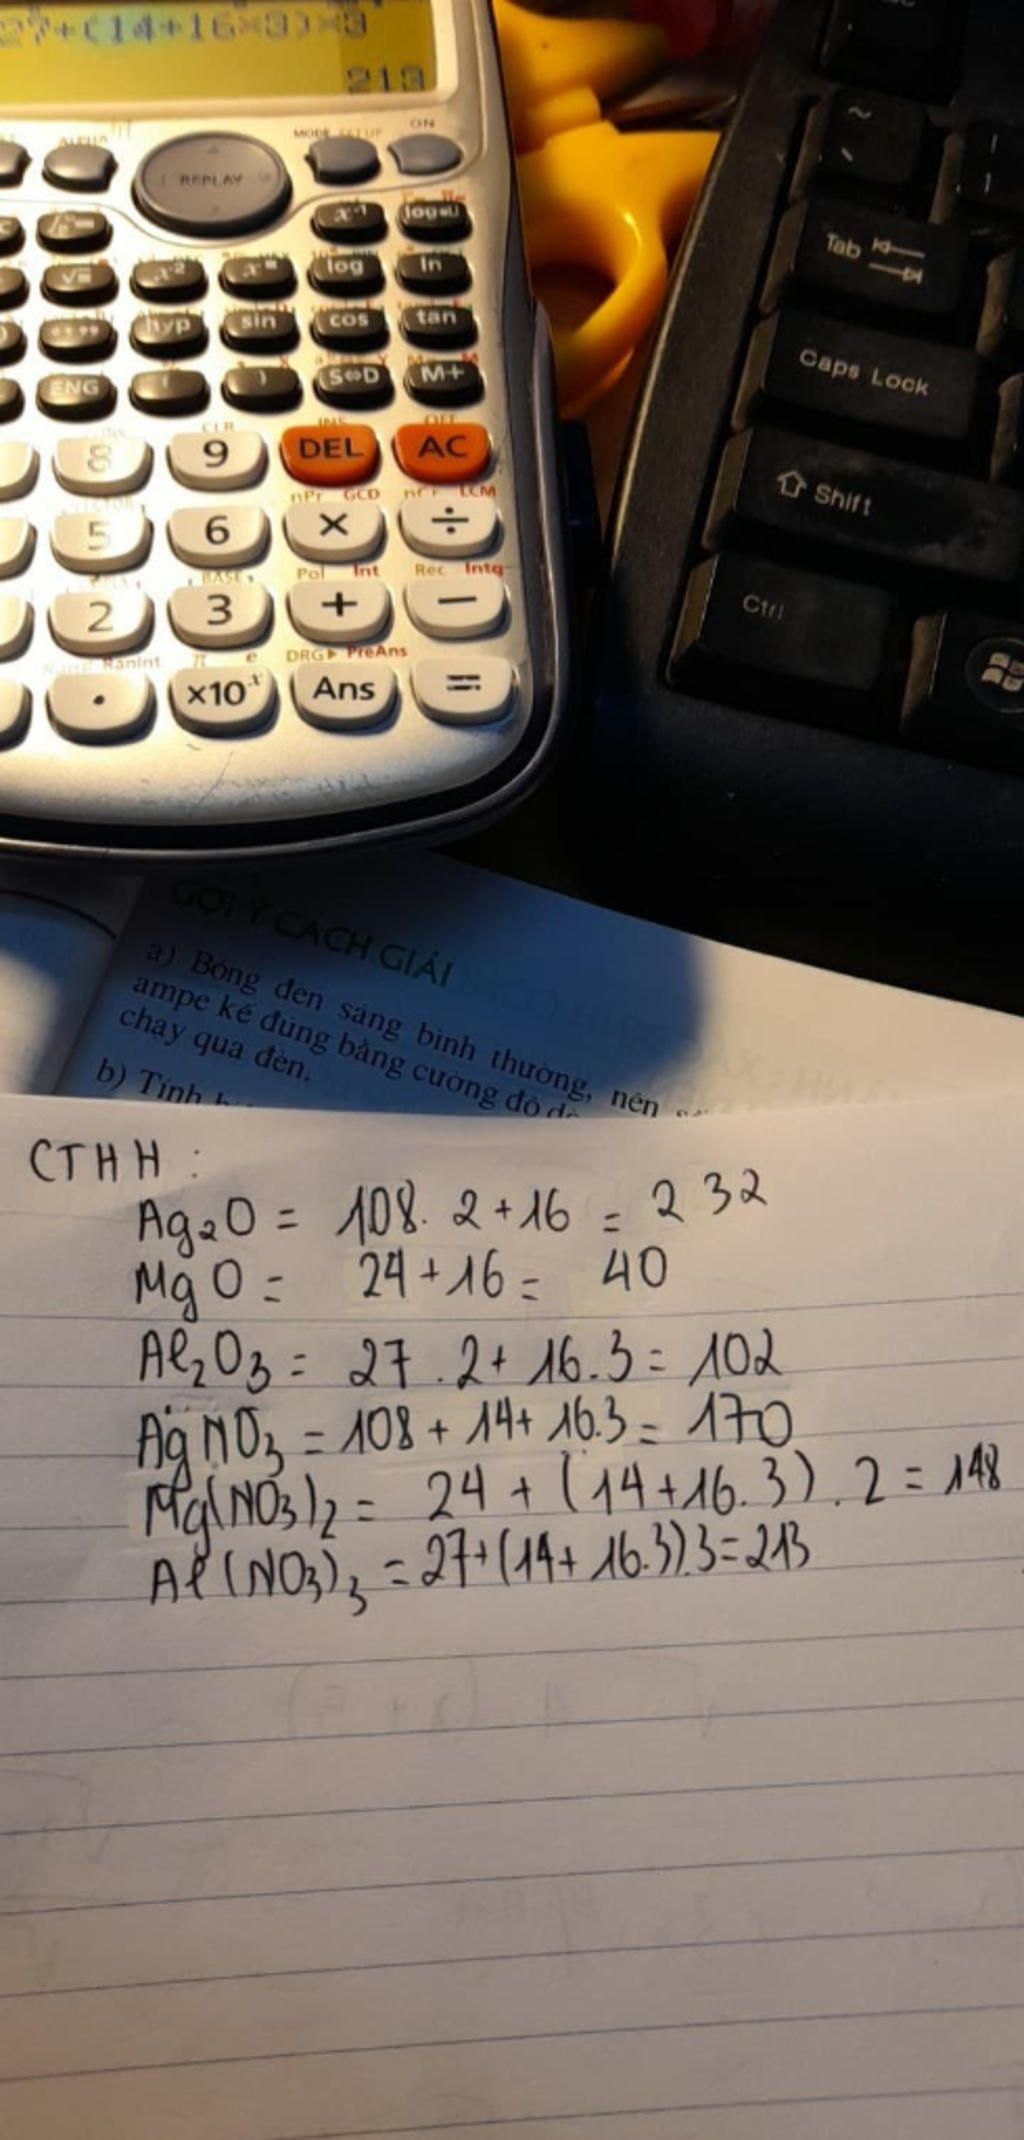 27+(14+16×3)×3
213
MODE SETUP
ON
ALPHA
REPLAY
x⁻¹
log
ln
hyp
sin
cos
tan
ENG
(
)
S⇔D
M+
CLR
INS
OFF
8
9
DEL
AC
nPr GCD
nCr LCM
5
6
×
÷
BASE
Pol Int
Rec Intg
2
3
+
−
RanInt
π e
DRG▶ PreAns
.
×10ˣ
Ans
=
~
`
!
1
Tab
Caps Lock
⇧ Shift
Ctrl
GỢI Ý CÁCH GIẢI
a) Bóng đèn sáng bình thường, nên
ampe kế đúng bằng cường độ
chạy qua đèn.
b) Tính
CTHH :
Ag₂O = 108. 2+16 = 232
MgO = 24+16 = 40
Al₂O₃ = 27 . 2+ 16.3 = 102
AgNO₃ = 108 + 14+ 16.3 = 170
Mg(NO₃)₂ = 24 + (14+16.3) . 2 = 148
Al(NO₃)₃ = 27+(14+ 16.3).3=213